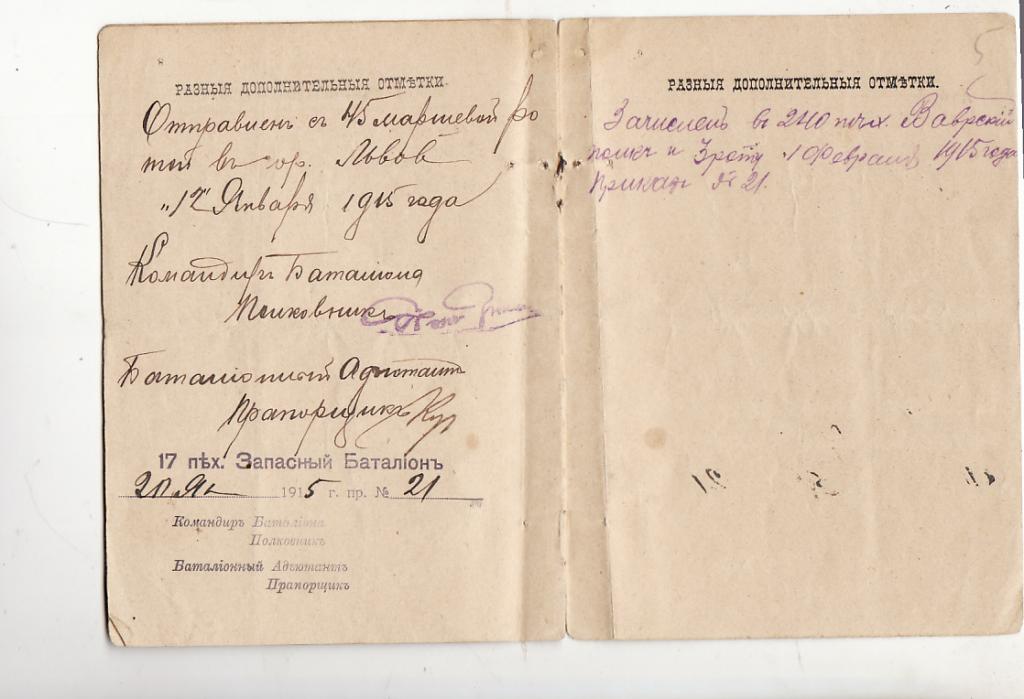 РАЗНЫЯ ДОПОЛНИТЕЛЬНЫЯ ОТМѢТКИ.
Отправленъ съ 45 маршевой ро
той въ гор. Львов
"12" Января 1915 года
Командиръ Баталіона
Полковникъ
Баталіонный Адъютантъ
Прапорщикъ
17 пѣх. Запасный Баталіонъ
20 Ян 1915 г. пр. № 21
Командиръ Баталіона
Полковникъ
Баталіонный Адъютантъ
Прапорщикъ
5
РАЗНЫЯ ДОПОЛНИТЕЛЬНЫЯ ОТМѢТКИ.
Зачислен в 240 пѣх. Ваврскій
полкъ и 3 роту 1 Февраля 1915 года
Приказ № 21.